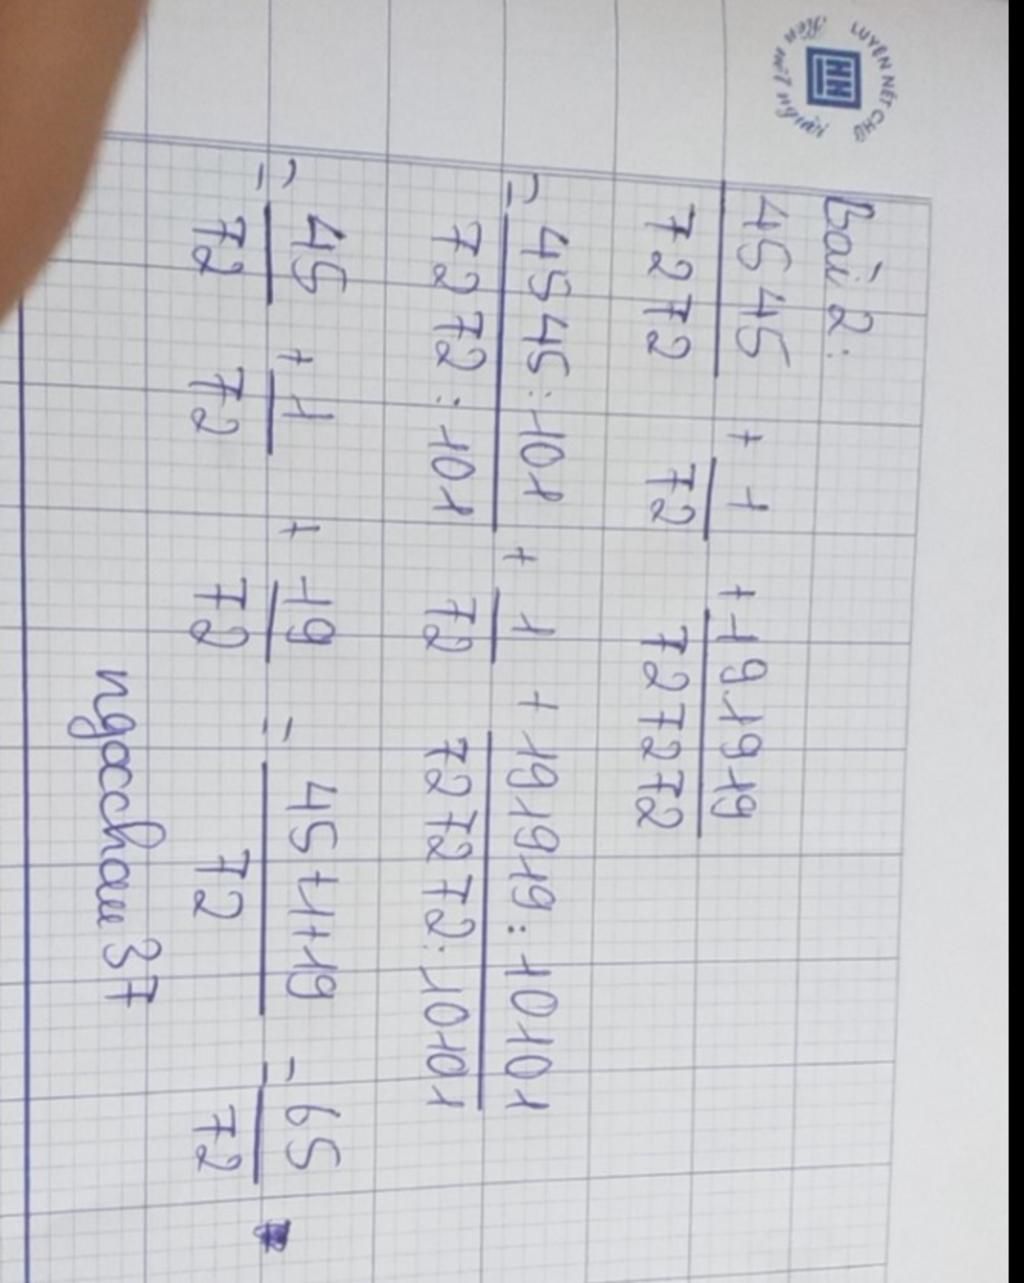 LUYỆN NÉT CHỮ
Rèn nết người
Bài 2:
4545/7272 + 1/72 + 191919/727272
= 4545:101/7272:101 + 1/72 + 191919:10101/727272:10101
= 45/72 + 1/72 + 19/72 = 45+1+19/72 = 65/72
ngocchau37